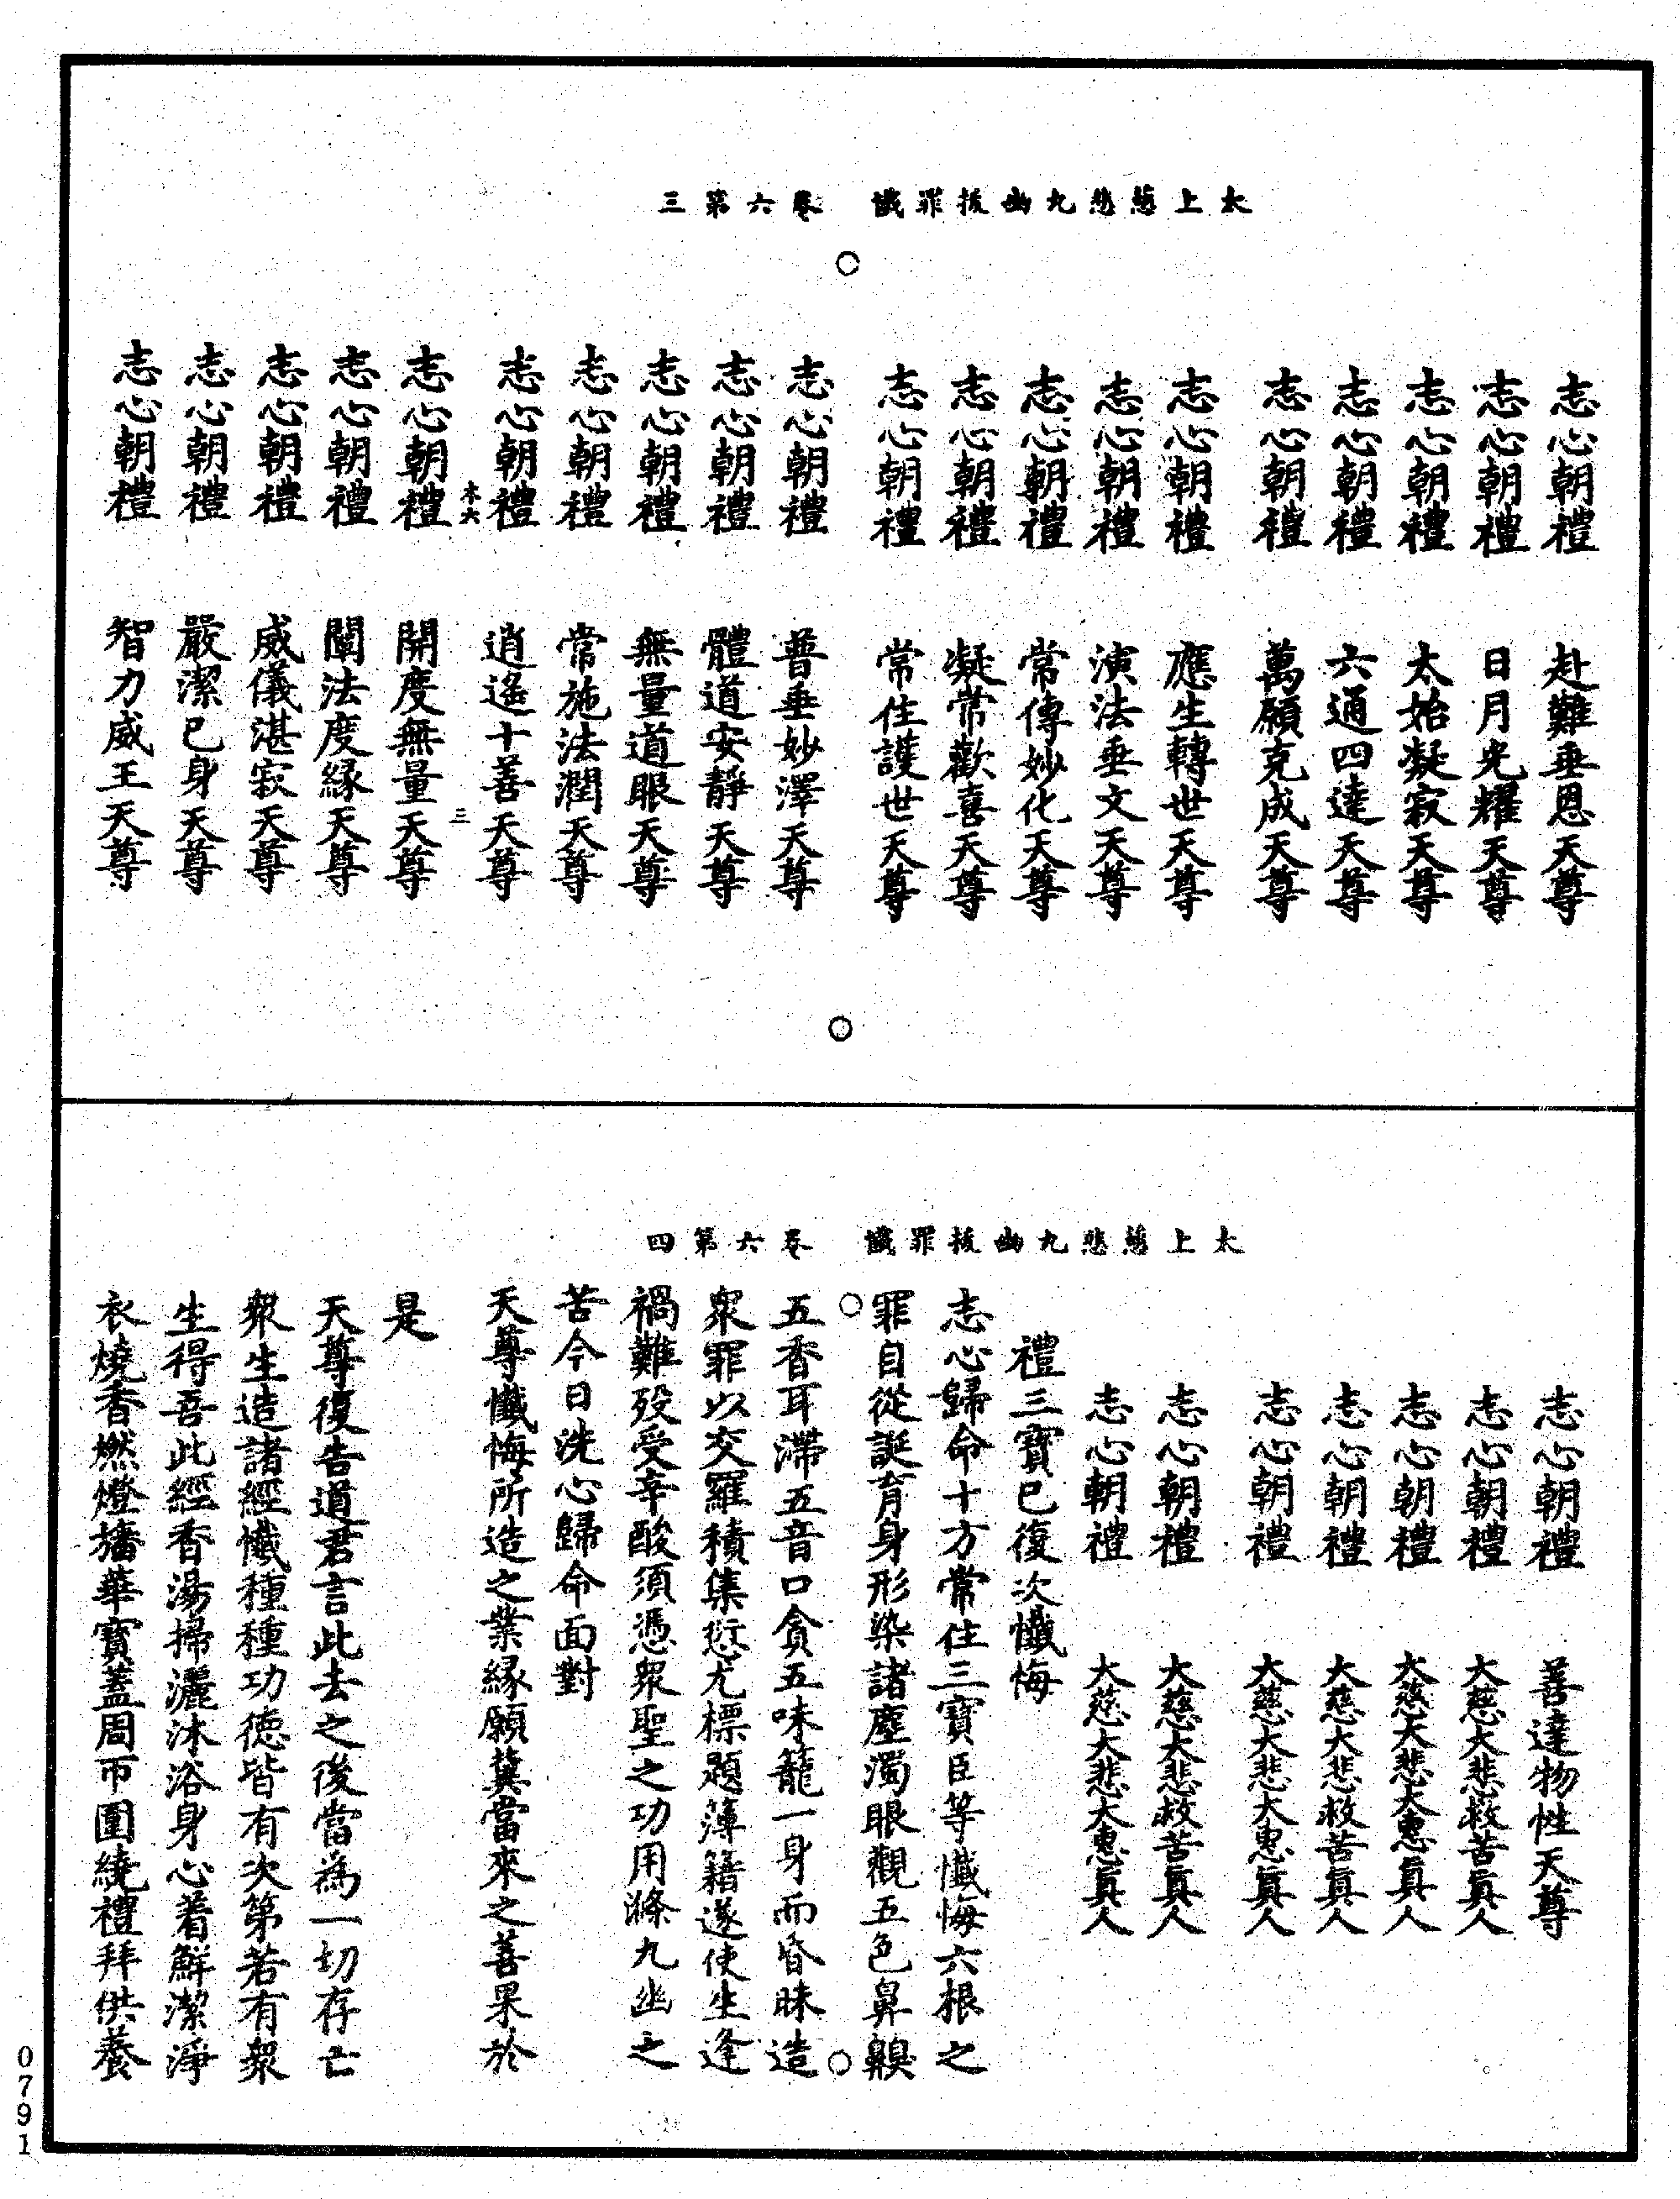 太上慈悲九幽拔罪懺　卷六第三
志心朝禮　赴難垂恩天尊
志心朝禮　日月光耀天尊
志心朝禮　太始凝寂天尊
志心朝禮　六通四達天尊
志心朝禮　萬願克成天尊
志心朝禮　應生轉世天尊
志心朝禮　演法垂文天尊
志心朝禮　常傳妙化天尊
志心朝禮　凝常歡喜天尊
志心朝禮　常住護世天尊
志心朝禮　普垂妙澤天尊
志心朝禮　體道安靜天尊
志心朝禮　無量道眼天尊
志心朝禮　常施法潤天尊
志心朝禮　逍遙十善天尊
木六　三
志心朝禮　開度無量天尊
志心朝禮　闡法度緣天尊
志心朝禮　威儀湛寂天尊
志心朝禮　嚴潔已身天尊
志心朝禮　智力威王天尊
太上慈悲九幽拔罪懺　卷六第四
志心朝禮　善達物性天尊
志心朝禮　大慈大悲救苦眞人
志心朝禮　大慈大悲大惠眞人
志心朝禮　大慈大悲救苦眞人
志心朝禮　大慈大悲大惠眞人
志心朝禮　大慈大悲救苦眞人
志心朝禮　大慈大悲大惠眞人
禮三寶已復次懺悔
志心歸命十方常住三寶臣等懺悔六根之
罪自從誕育身形染諸塵濁眼觀五色鼻齅
五香耳滯五音口貪五味籠一身而昏昧造
衆罪以交羅積集愆尤標題簿籍遂使生逢
禍難歿受辛酸須憑衆聖之功用滌九幽之
苦今日洗心歸命面對
天尊懺悔所造之業緣願冀當來之善果於
是
天尊復告道君言此去之後當為一切存亡
衆生造諸經懺種種功德皆有次第若有衆
生得吾此經香湯掃灑沐浴身心着鮮潔淨
衣燒香燃燈旛華寶蓋周帀圍繞禮拜供養
0791